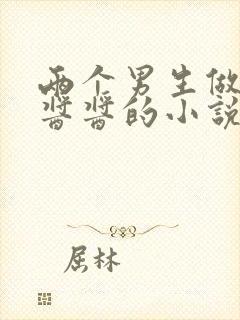 两个男生做
酱酱的小说
屈林